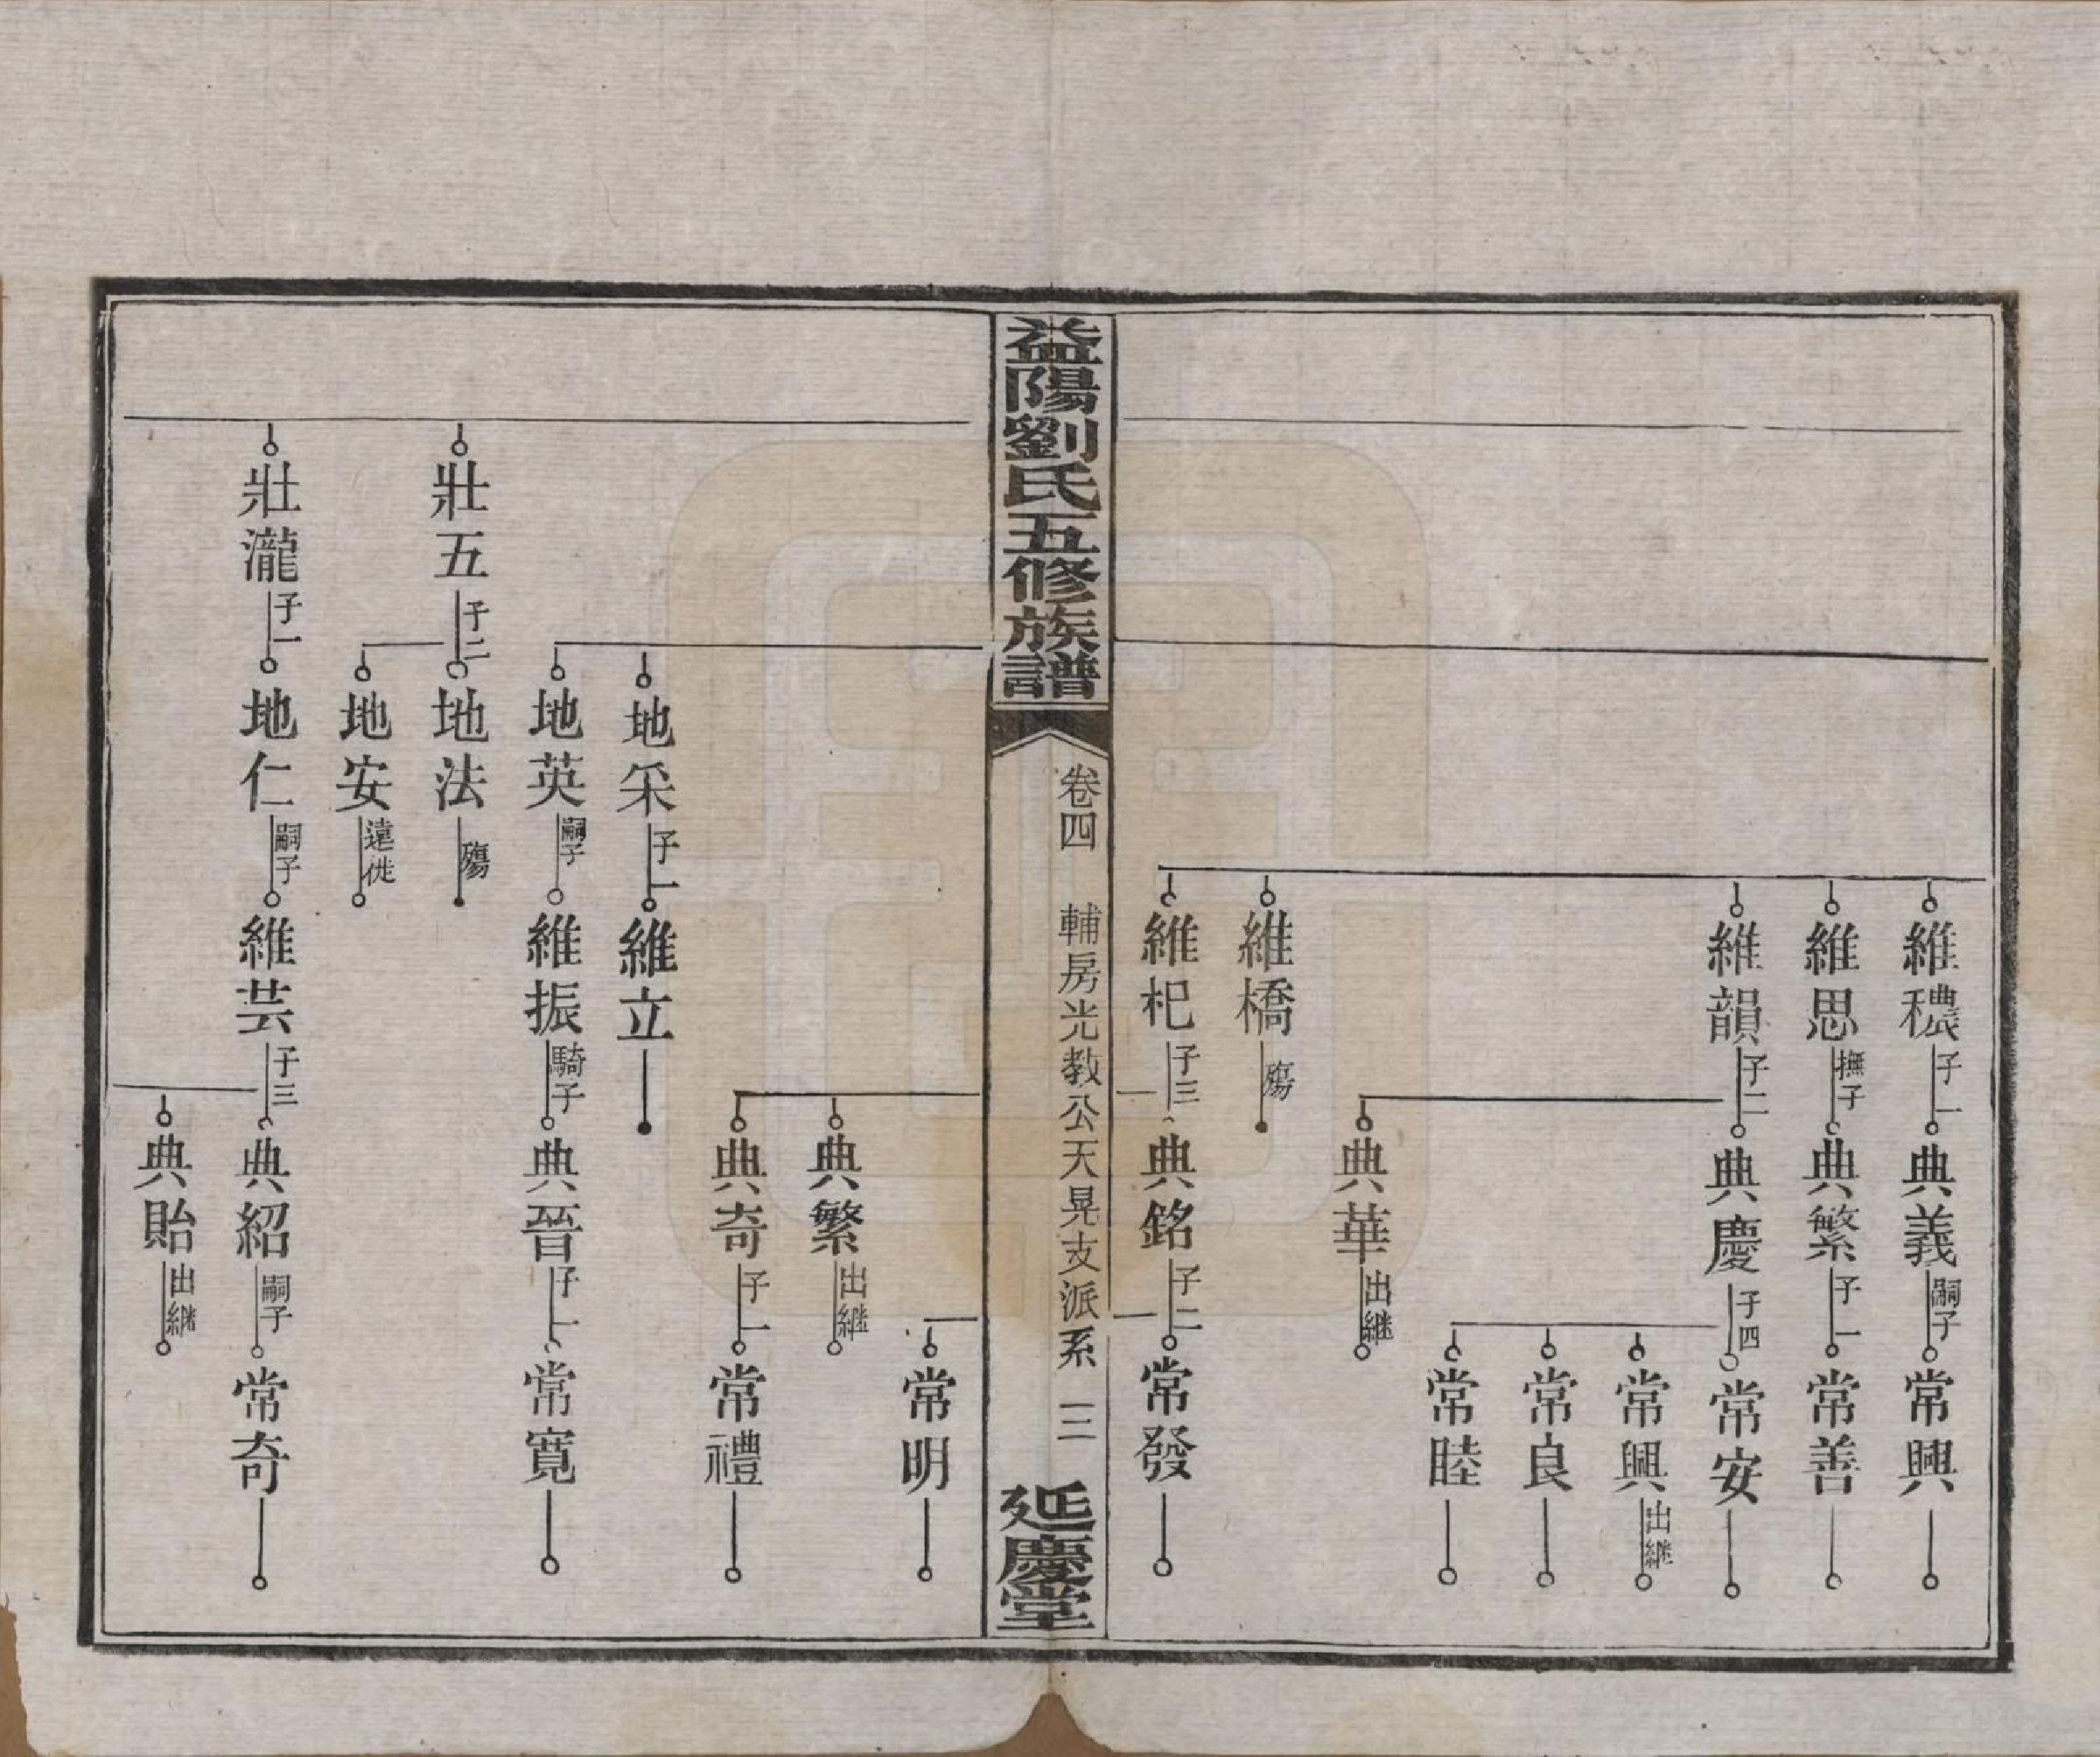 維穠 子一 典義 嗣子 常興
維思 撫子 典繁 子一 常善
維韻 子二 典慶 子四 常安
常興 出継
常良
常睦
典華 出継
維橋 殤
維杞 子三 典銘 子二 常發
益陽劉氏五修族譜
卷四 輔房光教公天晃支派系 三
延慶堂
常明
典繁 出継
典奇 子一 常禮
地采 子一 維立
地英 嗣子 維振 騎子 典晉 子一 常寬
壯五 子二 地法 殤
地安 遠徙
壯瀧 子一 地仁 嗣子 維芸 子三 典紹 嗣子 常奇
典貽 出継